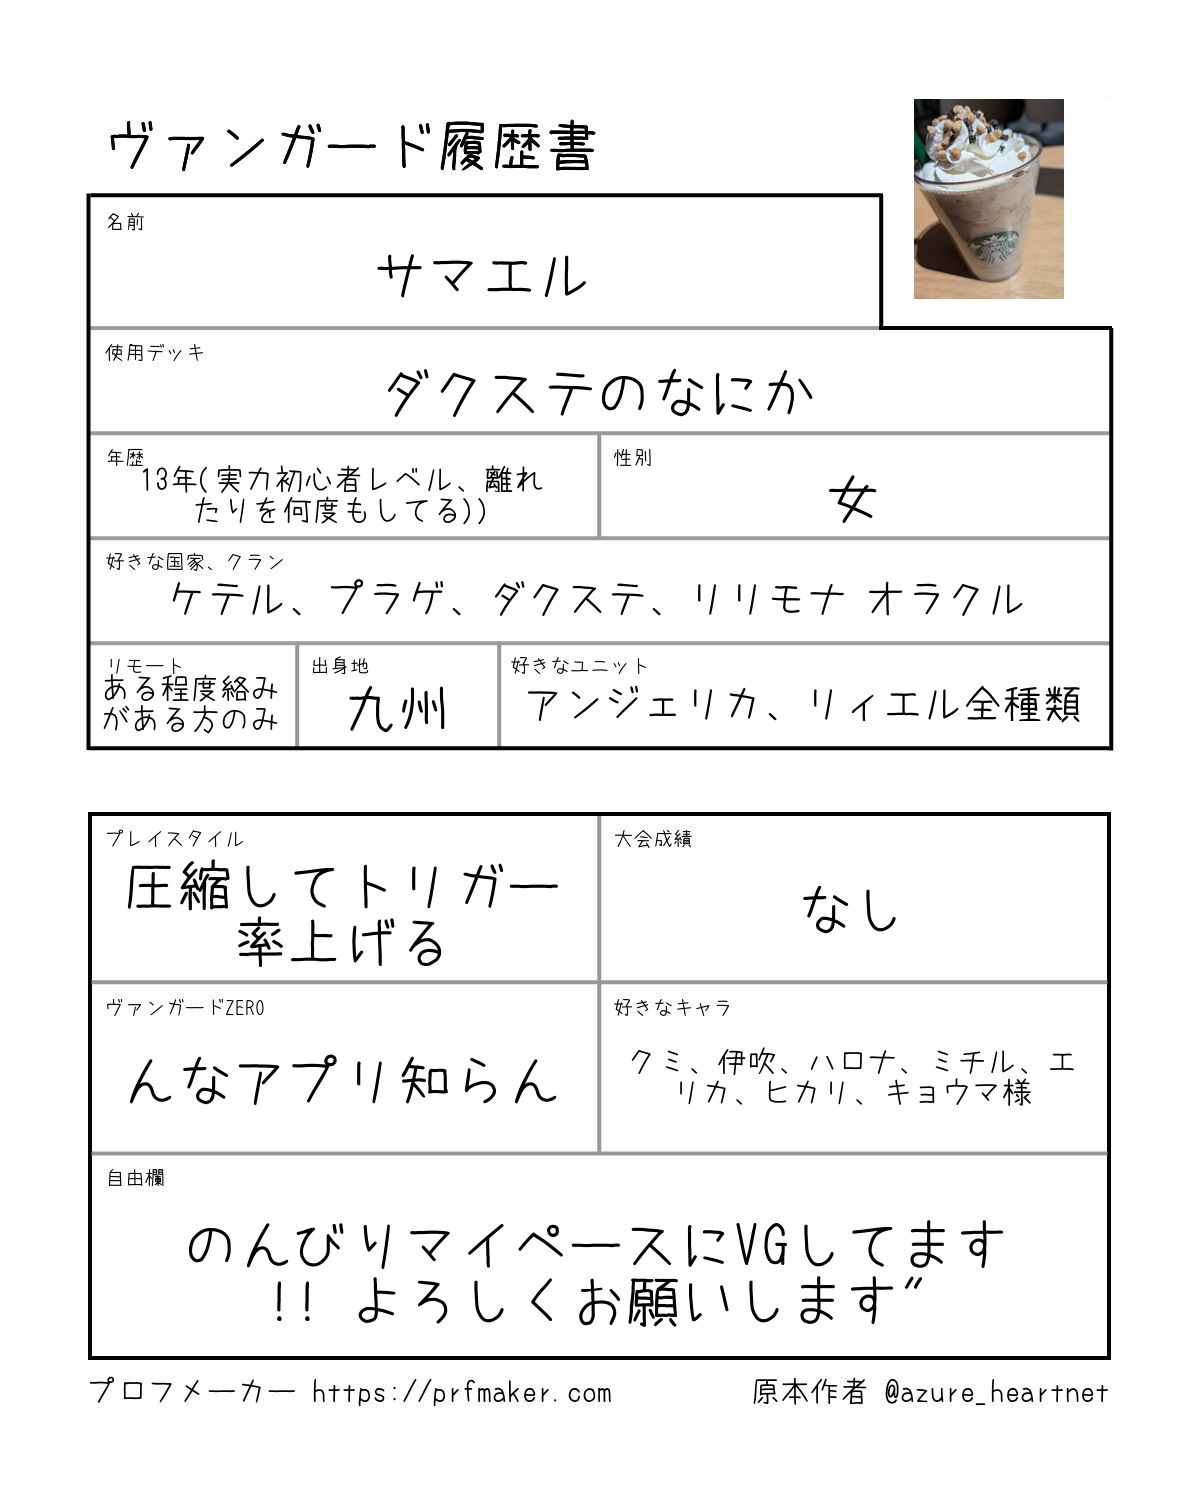 ヴァンガード履歴書
名前
サマエル
使用デッキ
ダクステのなにか
年歴
13年(実力初心者レベル、離れ
たりを何度もしてる))
性別
女
好きな国家、クラン
ケテル、プラゲ、ダクステ、リリモナ オラクル
リモート
ある程度絡み
がある方のみ
出身地
九州
好きなユニット
アンジェリカ、リィエル全種類
プレイスタイル
圧縮してトリガー
率上げる
大会成績
なし
ヴァンガードZERO
んなアプリ知らん
好きなキャラ
クミ、伊吹、ハロナ、ミチル、エ
リカ、ヒカリ、キョウマ様
自由欄
のんびりマイペースにVGしてます
!! よろしくお願いします"
プロフメーカー https://prfmaker.com
原本作者 @azure_heartnet